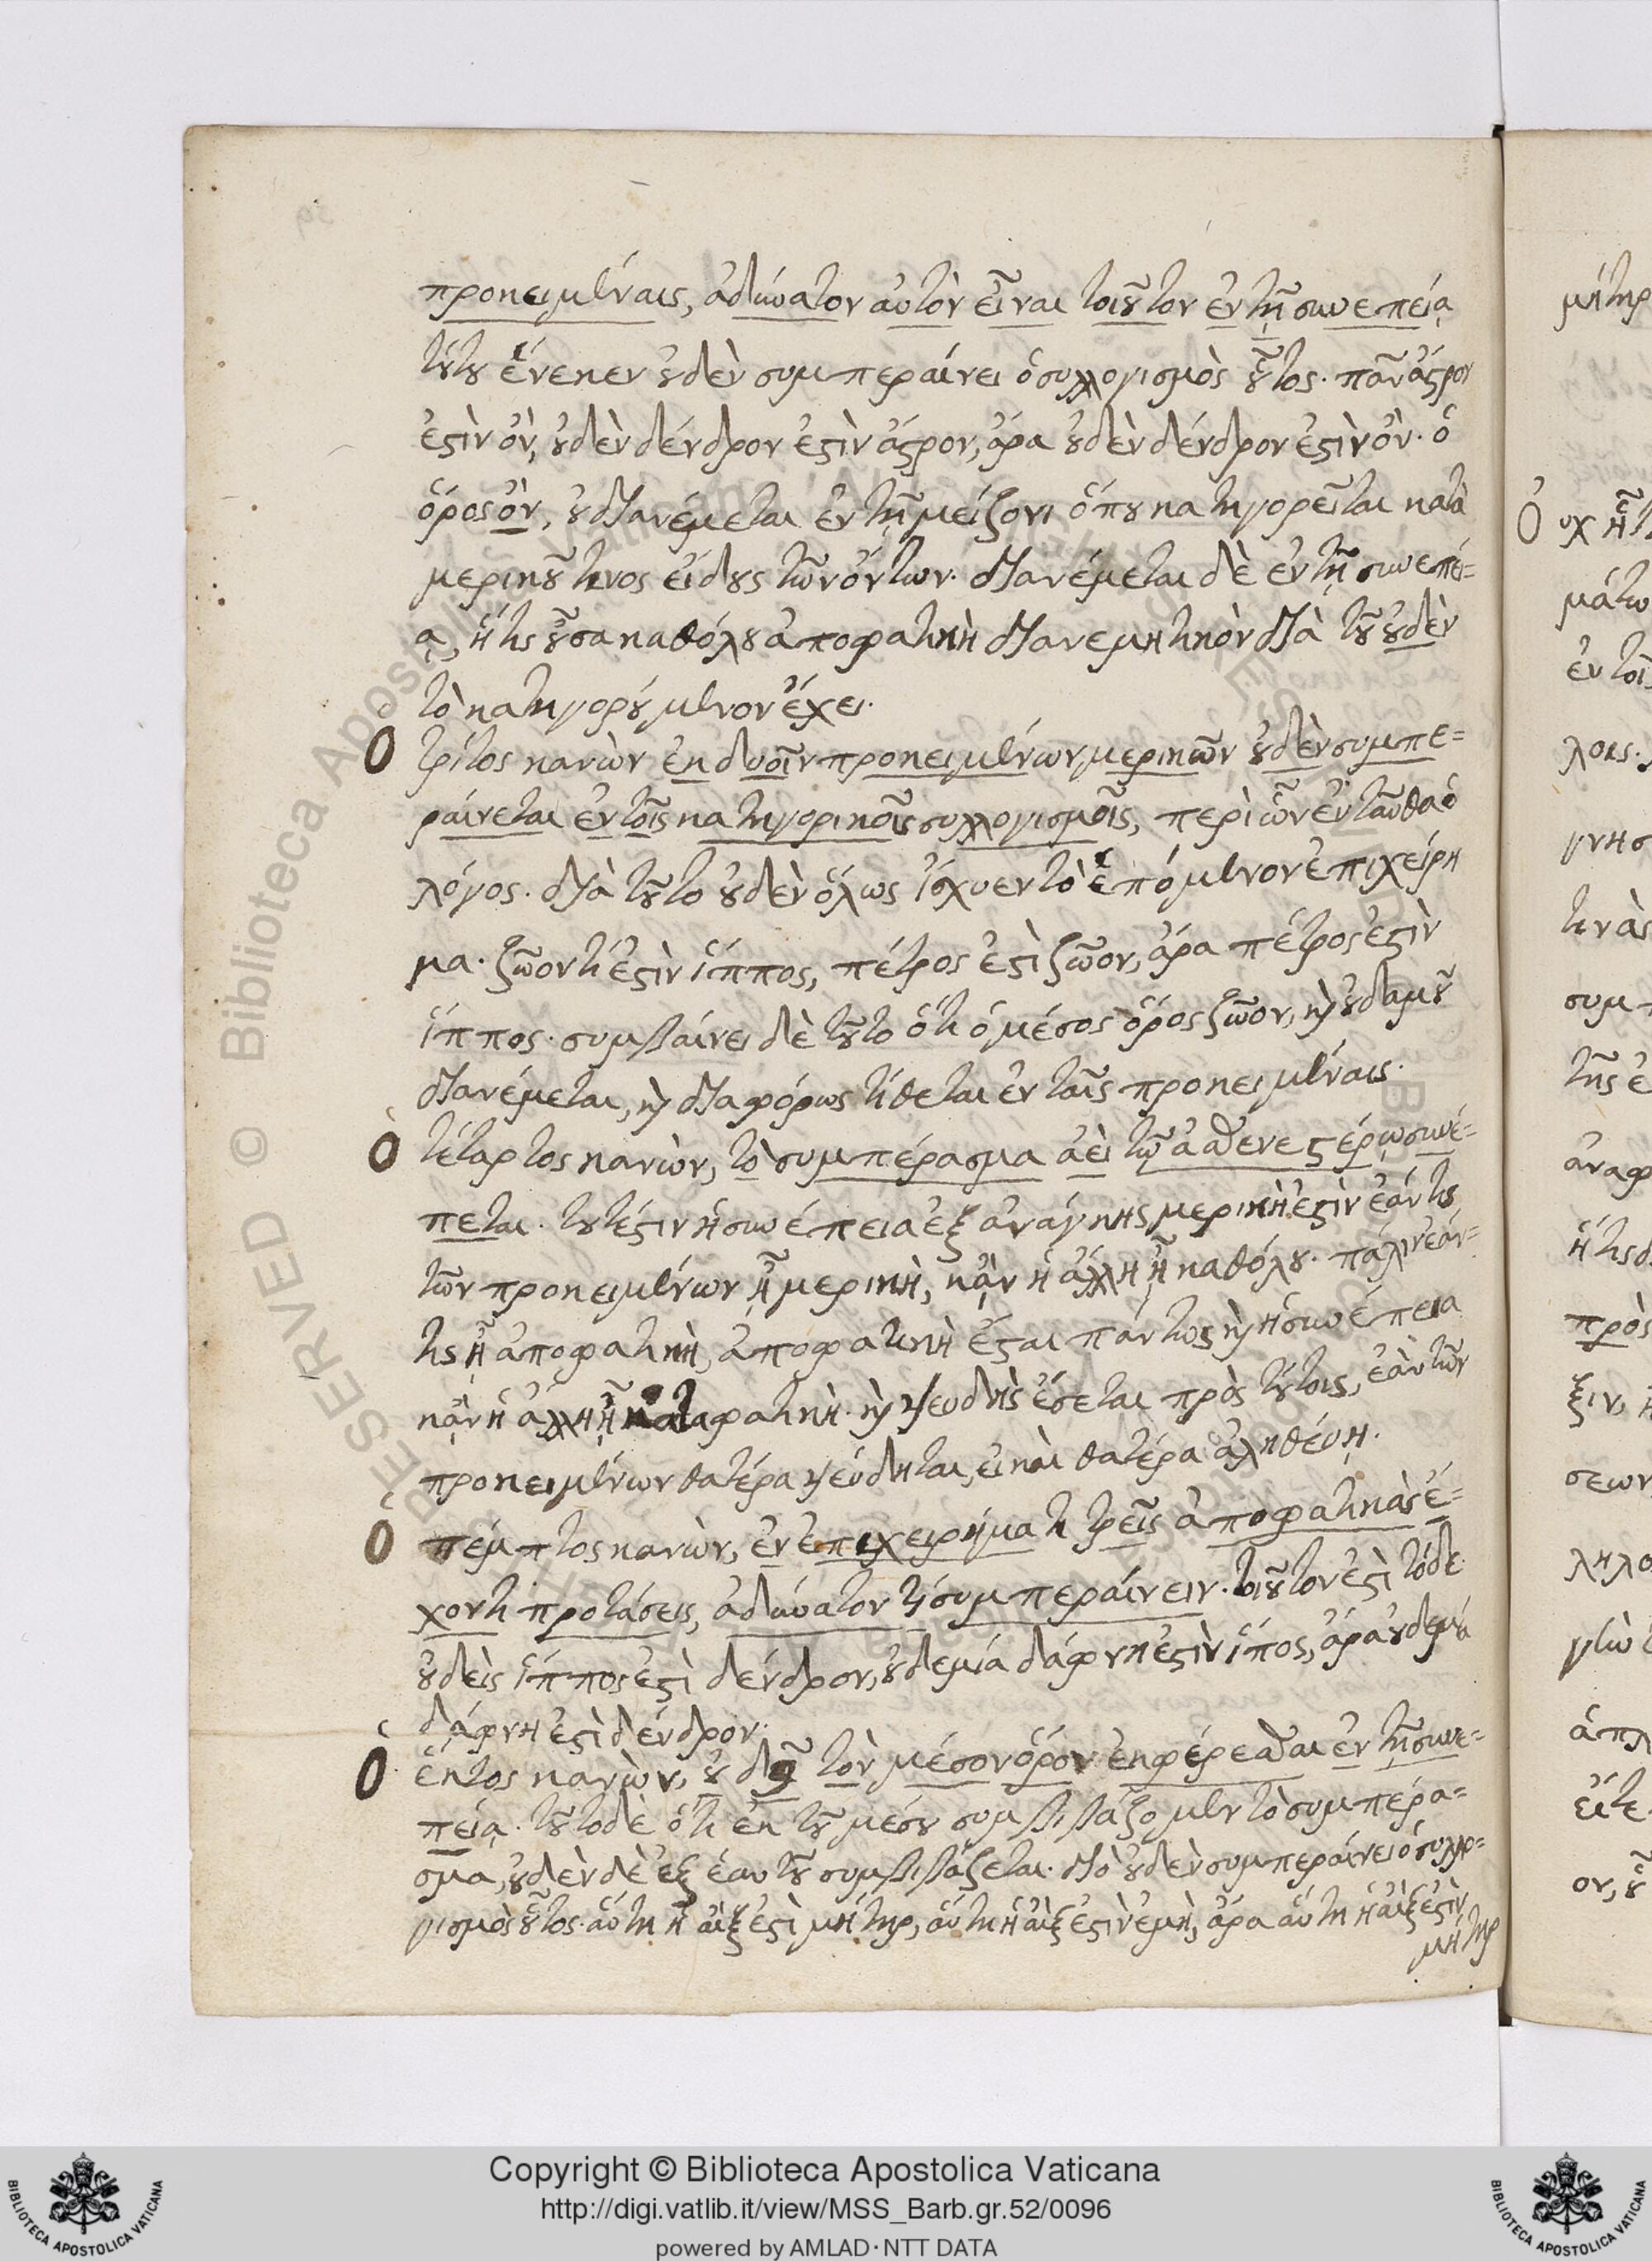 προκειμέναις, ἀδύνατον αὐτὸν εἶναι τοιοῦτον ἐν τῇ συνεπείᾳ
τούτου ἕνεκεν οὐδὲν συμπεραίνει ὁ συλλογισμὸς οὗτος. πᾶν ἄστρον
ἐστὶν ὂν, οὐδὲν δένδρον ἐστὶν ἄστρον, ἄρα οὐδὲν δένδρον ἐστὶν ὂν. ὁ
ὅρος ὂν, οὐ διανέμεται ἐν τῇ μείζονι ὅπου κατηγορεῖται κατὰ
μερικοῦ τινος εἴδους τῶν ὄντων. διανέμεται δὲ ἐν τῇ συνεπεί=
ᾳ, ἥτις οὖσα καθόλου ἀποφατικὴ διανεμητικὸν διὰ τοῦ οὐδὲν
τὸ κατηγορούμενον ἔχει.
Ὁ τρίτος κανὼν ἐκ δυοῖν προκειμένων μερικῶν οὐδὲν συμπε=
ραίνεται ἐν τοῖς κατηγορικοῖς συλλογισμοῖς, περὶ ὧν ἐνταῦθα ὁ
λόγος. διὰ τοῦτο οὐδὲν ὅλως ἴσχυεν τὸ ἑπόμενον ἐπιχείρη
μα. ζῶον τί ἐστὶν ἵππος, πέτρος ἐστὶ ζῶον, ἄρα πέτρος ἐστὶν
ἵππος. συμβαίνει δὲ τοῦτο ὅτι ὁ μέσος ὅρος ζῶον, καὶ οὐδαμοῦ
διανέμεται, καὶ διαφόρως τίθεται ἐν ταῖς προκειμέναις.
Ὁ τέταρτος κανὼν, τὸ συμπέρασμα ἀεὶ τῷ ἀσθενεστέρῳ συνέ=
πεται. τουτέστιν ἡ συνέπεια ἐξ ἀνάγκης μερικὴ ἐστὶν ἐάν τις
τῶν προκειμένων ᾖ μερικὴ, κᾂν ἡ ἄλλη ᾖ καθόλου. πάλιν ἐάν=
τις ᾖ ἀποφατικὴ, ἀποφατικὴ ἔσται πάντως καὶ ἡ συνέπεια
κᾂν ἡ ἄλλη ᾖ καταφατικὴ. καὶ ψευδὴς ἔσεται πρὸς τούτοις, ἐὰν τῶν
προκειμένων θατέρα ψεύδηται, εἰ καὶ θατέρα ἀληθέυῃ.
Ὁ πέμπτος κανὼν, ἐν ἐπιχειρήματι τρεῖς ἀποφατικὰς ἔ=
χοντι προτάσεις, ἀδύνατον τί συμπεραίνειν. τοιοῦτον ἐστὶ τόδε
οὐδεὶς ἵππος ἐστὶ δένδρον, οὐδεμία δάφνη ἐστὶν ἵπος, ἄρα οὐδεμία
δάφνη ἐστὶ δένδρον.
Ὁ ἕκτος κανὼν, οὐ δεῖ τὸν μέσον ὅρον ἐκφέρεσθαι ἐν τῇ συνε=
πείᾳ. τοῦτο δὲ ὅτι ἐκ τοῦ μέσου συμβιβάζομεν τὸ συμπέρα=
σμα, οὐδὲν δὲ ἐξ ἑαυτοῦ συμβιβάζεται. διὸ οὐδὲν συμπεραίνει ὁ συλλο=
γισμὸς οὗτος. αὕτη ἡ αἲξ ἐστὶ μήτηρ, αὕτη ἡ αἲξ ἐστὶν ἐμὴ, ἄρα αὕτη ἡ αἲξ ἐστὶν
μήτηρ
Copyright © Biblioteca Apostolica Vaticana
http://digi.vatlib.it/view/MSS_Barb.gr.52/0096
powered by AMLAD·NTT DATA